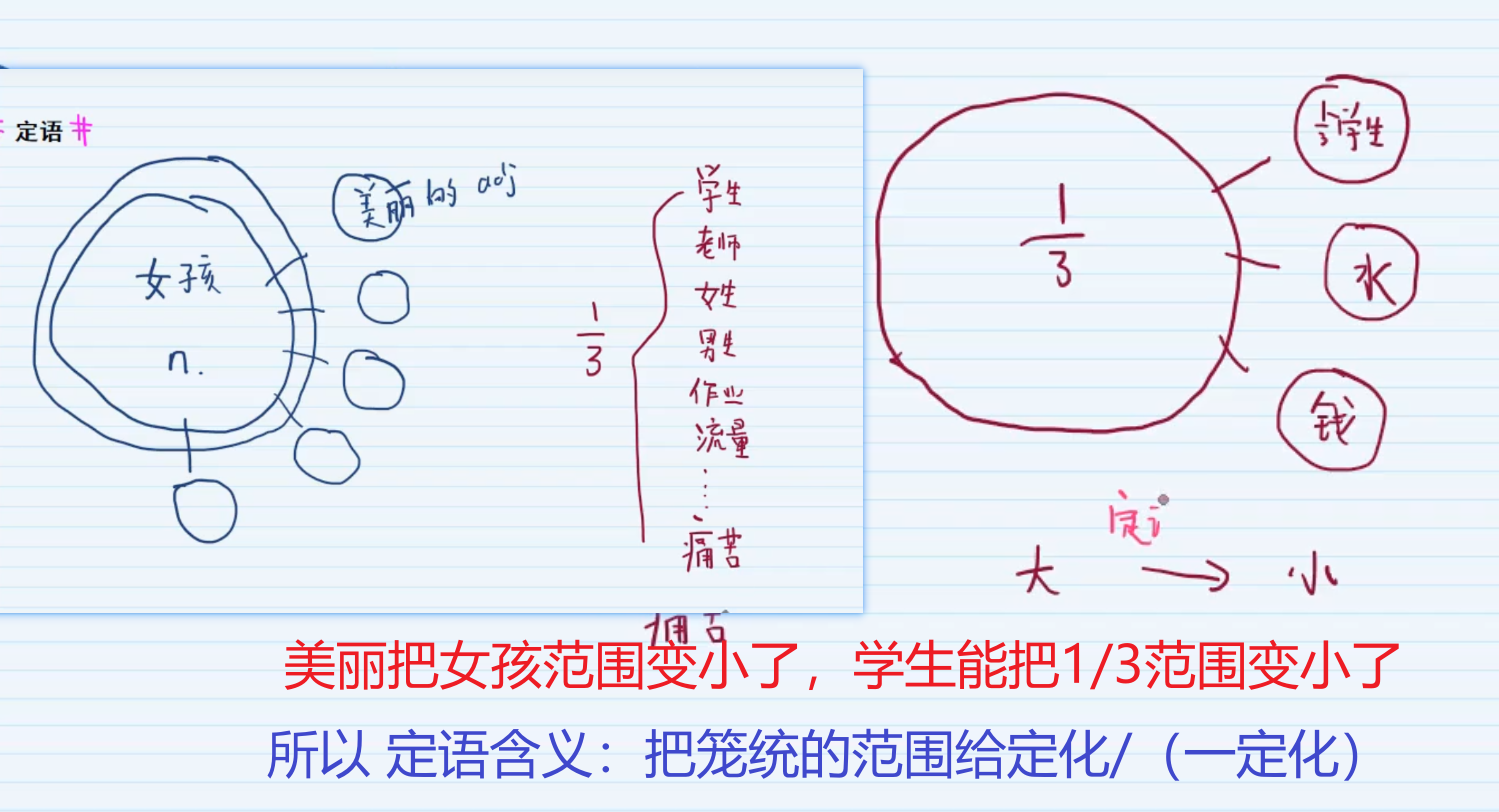 定语
美丽的 adj
女孩
n.
1/3
学生
老师
女生
男生
作业
流量
……
痛苦
1/3
1/3学生
水
钱
定
大 → 小
美丽把女孩范围变小了，学生能把1/3范围变小了
所以 定语含义：把笼统的范围给定化/（一定化）